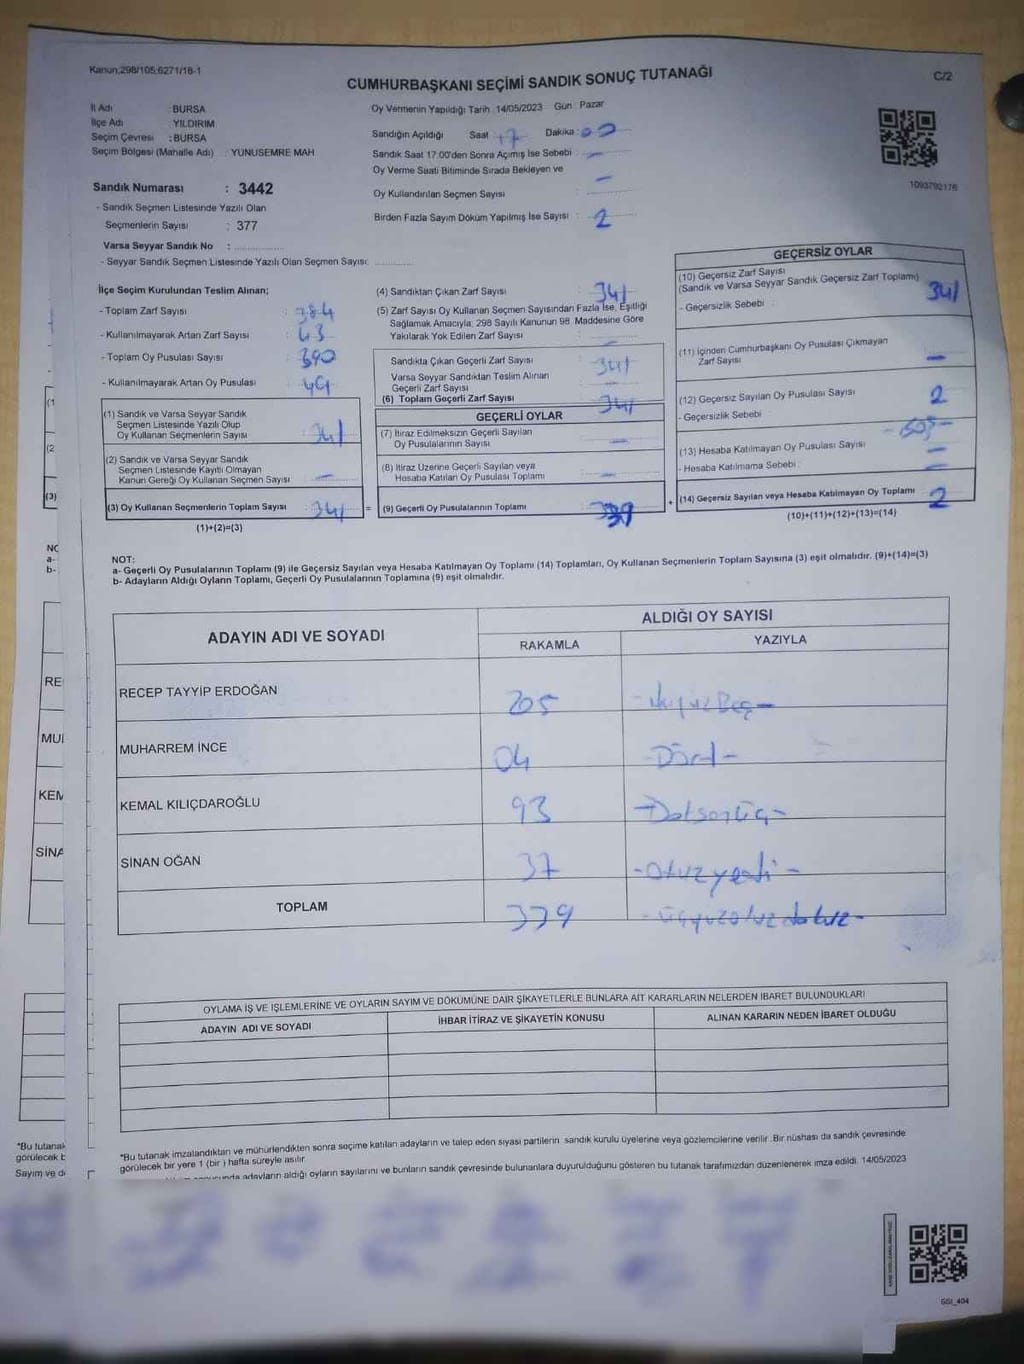 Kanun;298/105;6271/18-1
CUMHURBAŞKANI SEÇİMİ SANDIK SONUÇ TUTANAĞI
C/2
İl Adı : BURSA
İlçe Adı : YILDIRIM
Seçim Çevresi : BURSA
Seçim Bölgesi (Mahalle Adı) : YUNUSEMRE MAH
Sandık Numarası : 3442
- Sandık Seçmen Listesinde Yazılı Olan
Seçmenlerin Sayısı : 377
Varsa Seyyar Sandık No :
- Seyyar Sandık Seçmen Listesinde Yazılı Olan Seçmen Sayısı:
Oy Vermenin Yapıldığı Tarih : 14/05/2023 Gün : Pazar
Sandığın Açıldığı Saat : 17 Dakika : 00
Sandık Saat 17:00'den Sonra Açımış İse Sebebi : —
Oy Verme Saati Bitiminde Sırada Bekleyen ve
Oy Kullandırılan Seçmen Sayısı —
Birden Fazla Sayım Döküm Yapılmış İse Sayısı : 2
1093792176
İlçe Seçim Kurulundan Teslim Alınan;
- Toplam Zarf Sayısı : 384
- Kullanılmayarak Artan Zarf Sayısı : 43
- Toplam Oy Pusulası Sayısı : 390
- Kullanılmayarak Artan Oy Pusulası : 49
(1) Sandık ve Varsa Seyyar Sandık
Seçmen Listesinde Yazılı Olup
Oy Kullanan Seçmenlerin Sayısı : 341
(2) Sandık ve Varsa Seyyar Sandık
Seçmen Listesinde Kayıtlı Olmayan
Kanun Gereği Oy Kullanan Seçmen Sayısı : —
(3) Oy Kullanan Seçmenlerin Toplam Sayısı : 341 =
(1)+(2)=(3)
(4) Sandıktan Çıkan Zarf Sayısı : 341
(5) Zarf Sayısı Oy Kullanan Seçmen Sayısından Fazla İse, Eşitliği
Sağlamak Amacıyla; 298 Sayılı Kanunun 98. Maddesine Göre
Yakılarak Yok Edilen Zarf Sayısı : —
Sandıkta Çıkan Geçerli Zarf Sayısı : 341
Varsa Seyyar Sandıktan Teslim Alınan
Geçerli Zarf Sayısı : —
(6) Toplam Geçerli Zarf Sayısı : 341
GEÇERLİ OYLAR
(7) İtiraz Edilmeksizin Geçerli Sayılan
Oy Pusulalarının Sayısı : —
(8) İtiraz Üzerine Geçerli Sayılan veya
Hesaba Katılan Oy Pusulası Toplamı : —
(9) Geçerli Oy Pusulalarının Toplamı : 339 +
GEÇERSİZ OYLAR
(10) Geçersiz Zarf Sayısı
(Sandık ve Varsa Seyyar Sandık Geçersiz Zarf Toplamı) 341
- Geçersizlik Sebebi :
(11) İçinden Cumhurbaşkanı Oy Pusulası Çıkmayan
Zarf Sayısı : —
(12) Geçersiz Sayılan Oy Pusulası Sayısı : 2
- Geçersizlik Sebebi :
(13) Hesaba Katılmayan Oy Pusulası Sayısı : —
- Hesaba Katılmama Sebebi : —
(14) Geçersiz Sayılan veya Hesaba Katılmayan Oy Toplamı : 2
(10)+(11)+(12)+(13)=(14)
NOT:
a- Geçerli Oy Pusulalarının Toplamı (9) ile Geçersiz Sayılan veya Hesaba Katılmayan Oy Toplamı (14) Toplamları, Oy Kullanan Seçmenlerin Toplam Sayısına (3) eşit olmalıdır. (9)+(14)=(3)
b- Adayların Aldığı Oyların Toplamı, Geçerli Oy Pusulalarının Toplamına (9) eşit olmalıdır.
ADAYIN ADI VE SOYADI
ALDIĞI OY SAYISI
RAKAMLA YAZIYLA
RECEP TAYYİP ERDOĞAN 205 - ikiyüz Beş -
MUHARREM İNCE 04 - Dört -
KEMAL KILIÇDAROĞLU 93 - Doksanüç -
SİNAN OĞAN 37 - otuzyedi -
TOPLAM 339 - üçyüzotuzdokuz -
OYLAMA İŞ VE İŞLEMLERİNE VE OYLARIN SAYIM VE DÖKÜMÜNE DAİR ŞİKAYETLERLE BUNLARA AİT KARARLARIN NELERDEN İBARET BULUNDUKLARI
ADAYIN ADI VE SOYADI İHBAR İTİRAZ VE ŞİKAYETİN KONUSU ALINAN KARARIN NEDEN İBARET OLDUĞU
*Bu tutanak imzalandıktan ve mühürlendikten sonra seçime katılan adayların ve talep eden siyasi partilerin sandık kurulu üyelerine veya gözlemcilerine verilir. Bir nüshası da sandık çevresinde
görülecek bir yere 1 (bir) hafta süreyle asılır.
sonucunda adayların aldığı oyların sayılarını ve bunların sandık çevresinde bulunanlara duyurulduğunu gösteren bu tutanak tarafımızdan düzenlenerek imza edildi. 14/05/2023
(1
(2
(3)
NO
a-
b-
RE
MU
KEM
SİNA
*Bu tutanak
görülecek b
Sayım ve dö
GSI_404